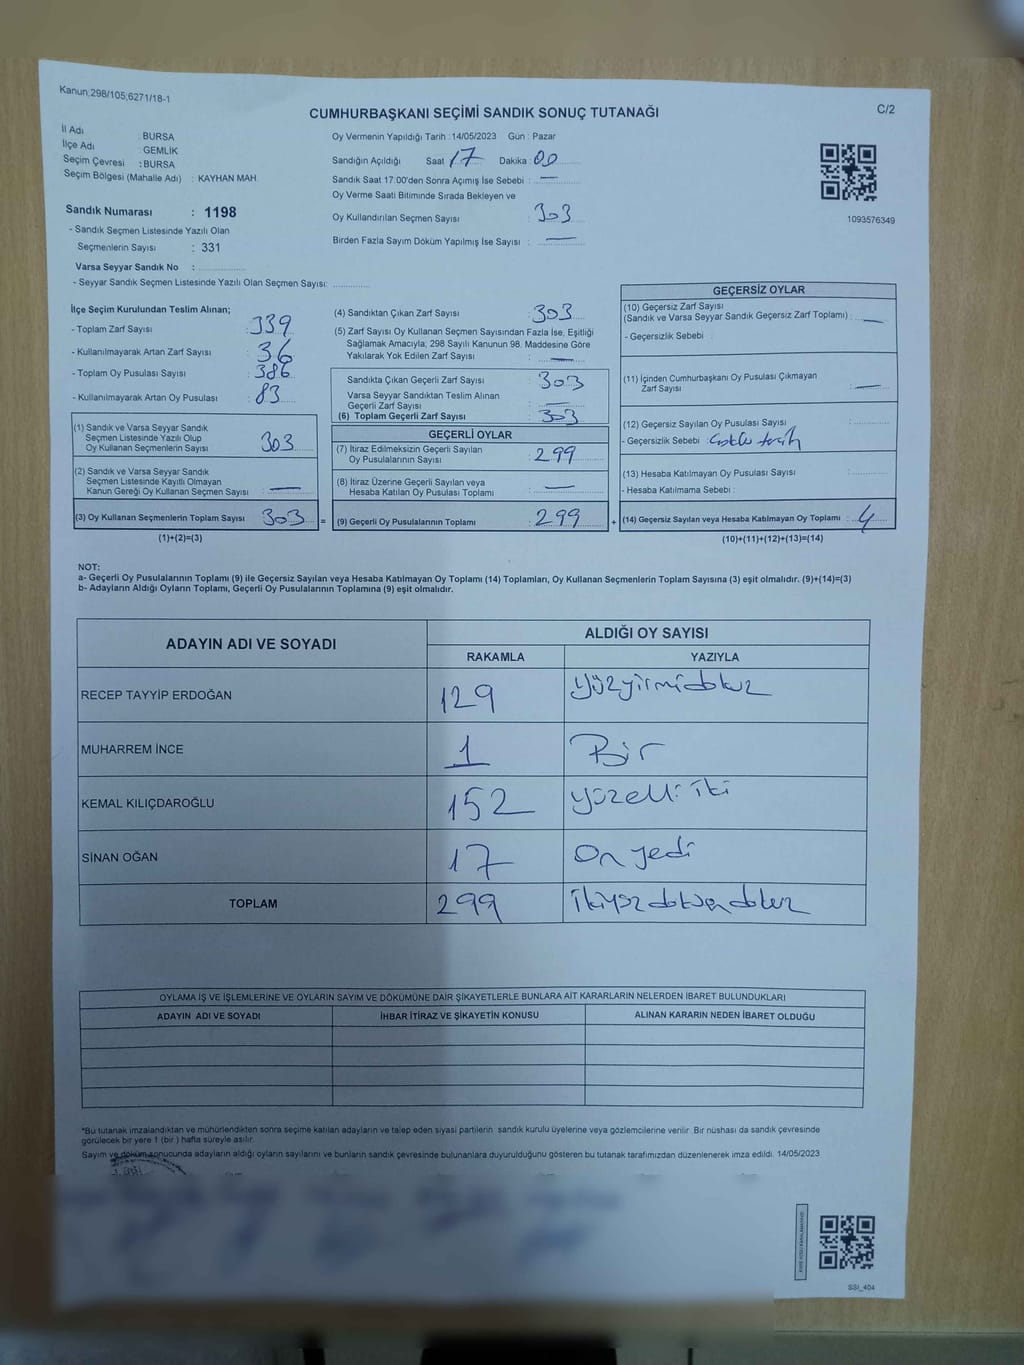 Kanun;298/105;6271/18-1
C/2
CUMHURBAŞKANI SEÇİMİ SANDIK SONUÇ TUTANAĞI
İl Adı : BURSA
İlçe Adı : GEMLİK
Seçim Çevresi : BURSA
Seçim Bölgesi (Mahalle Adı) : KAYHAN MAH.
Sandık Numarası : 1198
- Sandık Seçmen Listesinde Yazılı Olan
Seçmenlerin Sayısı : 331
Varsa Seyyar Sandık No :
- Seyyar Sandık Seçmen Listesinde Yazılı Olan Seçmen Sayısı:
Oy Vermenin Yapıldığı Tarih : 14/05/2023 Gün : Pazar
Sandığın Açıldığı Saat 17 Dakika : 00
Sandık Saat 17:00'den Sonra Açımış İse Sebebi : —
Oy Verme Saati Bitiminde Sırada Bekleyen ve
Oy Kullandırılan Seçmen Sayısı : 303
Birden Fazla Sayım Döküm Yapılmış İse Sayısı : —
1093576349
İlçe Seçim Kurulundan Teslim Alınan;
- Toplam Zarf Sayısı : 339
- Kullanılmayarak Artan Zarf Sayısı : 36
- Toplam Oy Pusulası Sayısı : 386
- Kullanılmayarak Artan Oy Pusulası : 83
(1) Sandık ve Varsa Seyyar Sandık
Seçmen Listesinde Yazılı Olup
Oy Kullanan Seçmenlerin Sayısı : 303
(2) Sandık ve Varsa Seyyar Sandık
Seçmen Listesinde Kayıtlı Olmayan
Kanun Gereği Oy Kullanan Seçmen Sayısı : —
(3) Oy Kullanan Seçmenlerin Toplam Sayısı : 303 =
(1)+(2)=(3)
(4) Sandıktan Çıkan Zarf Sayısı : 303
(5) Zarf Sayısı Oy Kullanan Seçmen Sayısından Fazla İse, Eşitliği
Sağlamak Amacıyla; 298 Sayılı Kanunun 98. Maddesine Göre
Yakılarak Yok Edilen Zarf Sayısı : —
Sandıkta Çıkan Geçerli Zarf Sayısı : 303
Varsa Seyyar Sandıktan Teslim Alınan
Geçerli Zarf Sayısı : —
(6) Toplam Geçerli Zarf Sayısı : 303
GEÇERLİ OYLAR
(7) İtiraz Edilmeksizin Geçerli Sayılan
Oy Pusulalarının Sayısı : 299
(8) İtiraz Üzerine Geçerli Sayılan veya
Hesaba Katılan Oy Pusulası Toplamı : —
(9) Geçerli Oy Pusulalarının Toplamı : 299 +
GEÇERSİZ OYLAR
(10) Geçersiz Zarf Sayısı
(Sandık ve Varsa Seyyar Sandık Geçersiz Zarf Toplamı) : —
- Geçersizlik Sebebi :
(11) İçinden Cumhurbaşkanı Oy Pusulası Çıkmayan
Zarf Sayısı : —
(12) Geçersiz Sayılan Oy Pusulası Sayısı :
- Geçersizlik Sebebi :
(13) Hesaba Katılmayan Oy Pusulası Sayısı :
- Hesaba Katılmama Sebebi :
(14) Geçersiz Sayılan veya Hesaba Katılmayan Oy Toplamı : 4
(10)+(11)+(12)+(13)=(14)
NOT:
a- Geçerli Oy Pusulalarının Toplamı (9) ile Geçersiz Sayılan veya Hesaba Katılmayan Oy Toplamı (14) Toplamları, Oy Kullanan Seçmenlerin Toplam Sayısına (3) eşit olmalıdır. (9)+(14)=(3)
b- Adayların Aldığı Oyların Toplamı, Geçerli Oy Pusulalarının Toplamına (9) eşit olmalıdır.
ADAYIN ADI VE SOYADI
ALDIĞI OY SAYISI
RAKAMLA YAZIYLA
RECEP TAYYİP ERDOĞAN 129 yüzyirmidokuz
MUHARREM İNCE 1 Bir
KEMAL KILIÇDAROĞLU 152 yüzelli iki
SİNAN OĞAN 17 On yedi
TOPLAM 299 ikiyüz doksan dokuz
OYLAMA İŞ VE İŞLEMLERİNE VE OYLARIN SAYIM VE DÖKÜMÜNE DAİR ŞİKAYETLERLE BUNLARA AİT KARARLARIN NELERDEN İBARET BULUNDUKLARI
ADAYIN ADI VE SOYADI İHBAR İTİRAZ VE ŞİKAYETİN KONUSU ALINAN KARARIN NEDEN İBARET OLDUĞU
*Bu tutanak imzalandıktan ve mühürlendikten sonra seçime katılan adayların ve talep eden siyasi partilerin sandık kurulu üyelerine veya gözlemcilerine verilir. Bir nüshası da sandık çevresinde
görülecek bir yere 1 (bir ) hafta süreyle asılır.
Sayım ve döküm sonucunda adayların aldığı oyların sayılarını ve bunların sandık çevresinde bulunanlara duyurulduğunu gösteren bu tutanak tarafımızdan düzenlenerek imza edildi. 14/05/2023
SSI_404